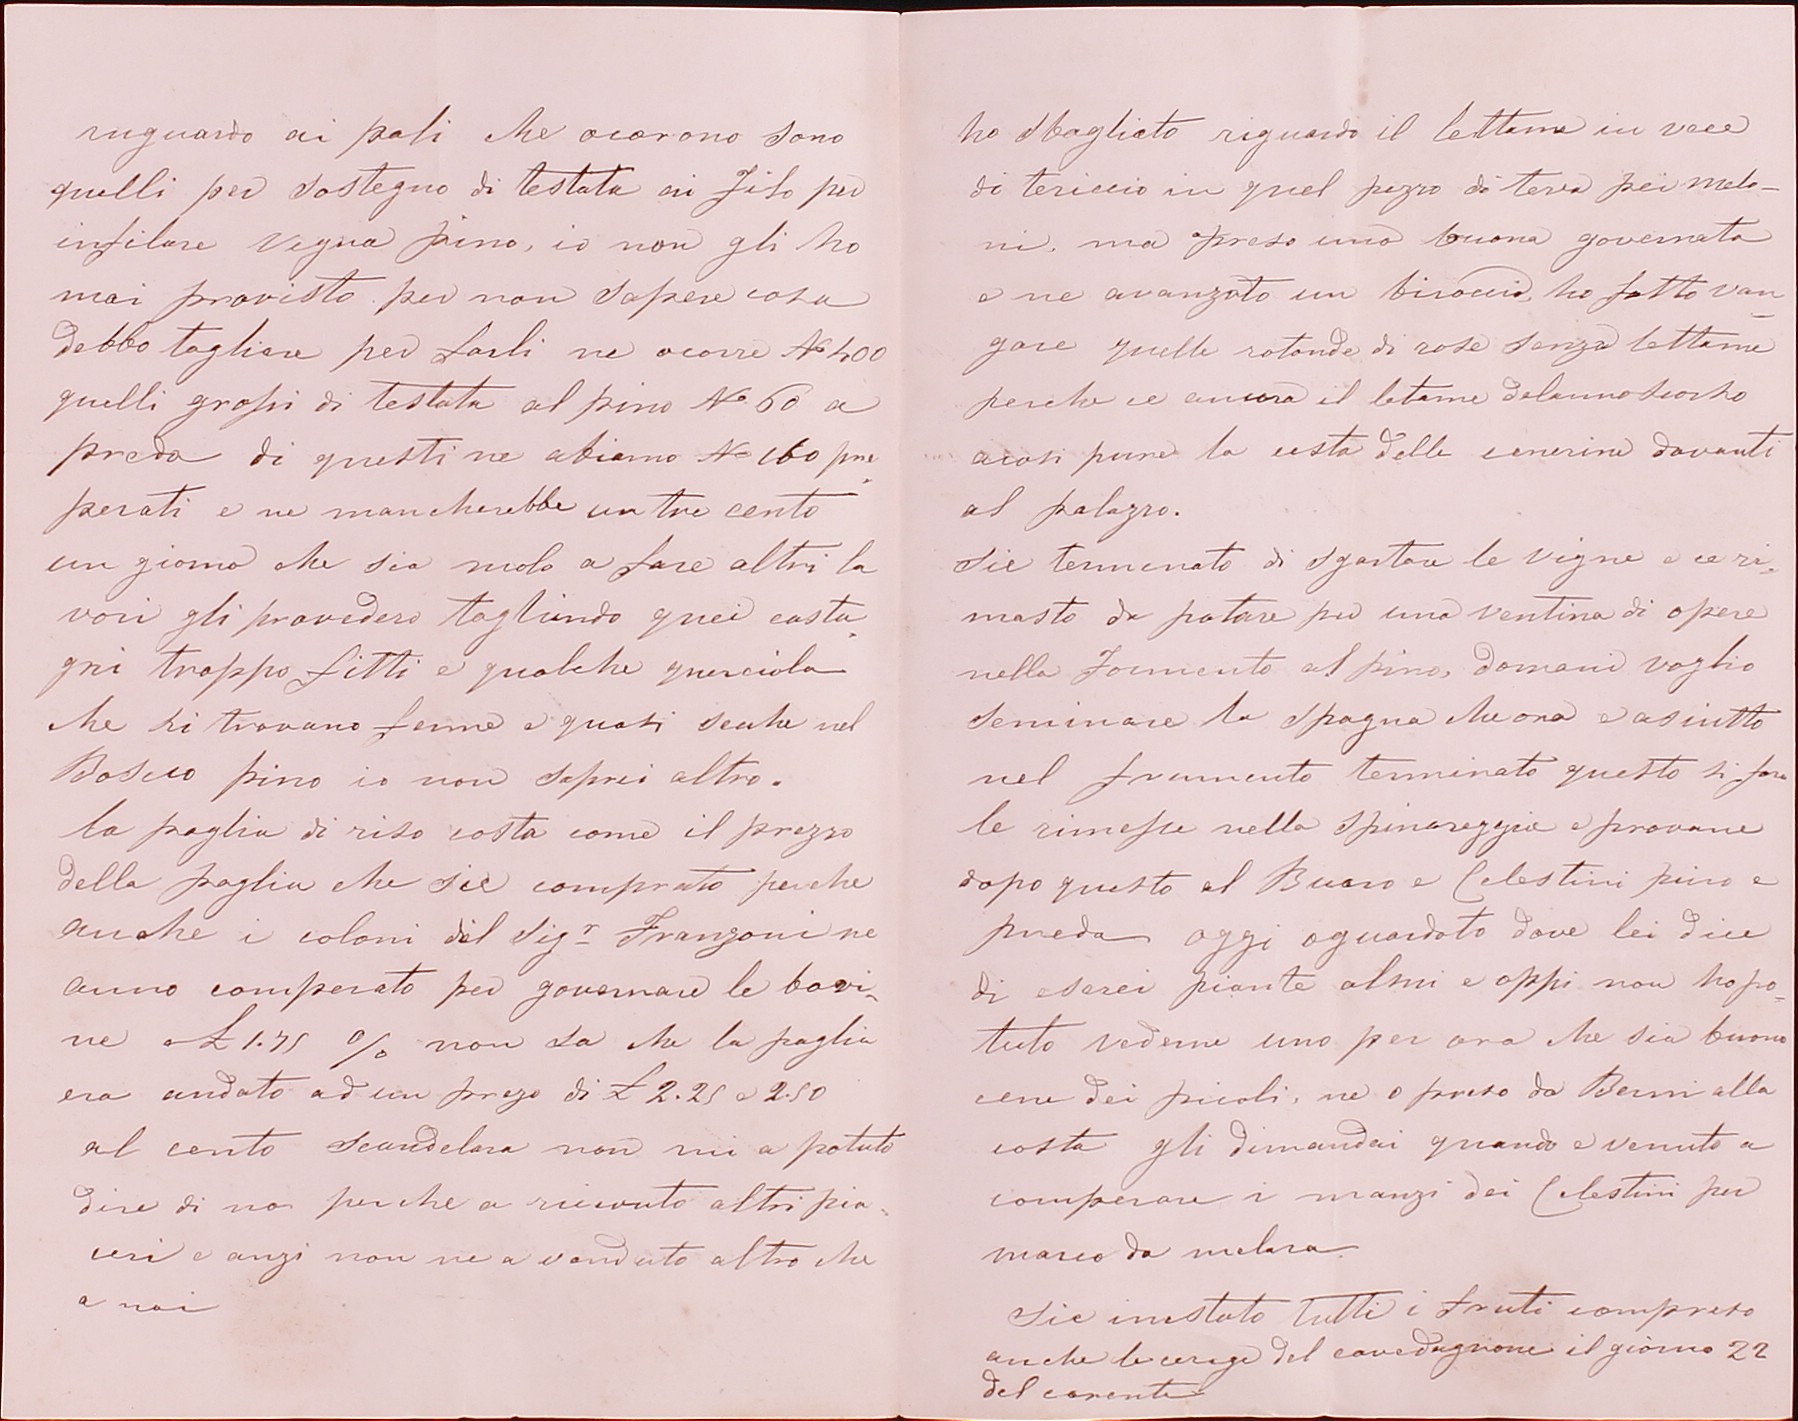 riguardo ai pali che ocorono sono
quelli per sostegno di testata ai Filo per
infilare Vegna pino, io non gli ho
mai provisto per non sapere cosa
debbo tagliare per farli ne ocorre No 400
quelli grossi di testata al pino No 60 a
preda di questi ne abiamo No 160 pre
perati e ne mancherebbe un tre cento
un giorno che sia molo a fare altri la
vori gli provedero tagliando quei casta-
gni troppo fitti e qualche querciola
che si trovano ferme e quasi seche nel
Bosco pino io non saprei altro.
la paglia di riso costa come il prezzo
della paglia che sie comprato perche
anche i coloni del Sigr Franzoni ne
anno comperato per governare le bovi-
ne a £ 1.75 % non sa che la paglia
era andato ad un prezo di £ 2.25 e 2.50
al cento Scandelara non mi a potuto
dire di no perche a ricevuto altri pia-
ceri e anzi non ne a venduto altro che
a noi
ho sbagliato riguardo il lettame in vece
di tericcio in quel pezzo di terra pei melo-
ni. ma preso una buona governata
e ne avanzato un biroccio, ho fatto van-
gare quelle rotonde di rose senza lettame
perche ce ancora il letame delanno scorso
acosi pure la costa delle cenerine davanti
al palazzo.
Sie terminato di sgartare le vigne e ce ri-
masto da potare per una ventina di opere
nella Formento al pino, domani voglio
seminare la spagna che ora e asiutto
nel frumento terminato questo si fara
le rimesse nella Spinareggia e provane
dopo questo al Buaro e Celestini pino e
preda oggi oguardato dove lei dice
di eserci piante olmi e oppi non ho po-
tuto vederne uno per ora che sia buono
cene dei picoli, ne o preso da Berni alla
costa gli dimandai quando e venuto a
comperare i manzi dei Celestini per
marco da melara.
Sie inestato tutti i fruti compreso
anche le cerege del cavedagnone il giorno 22
del corente